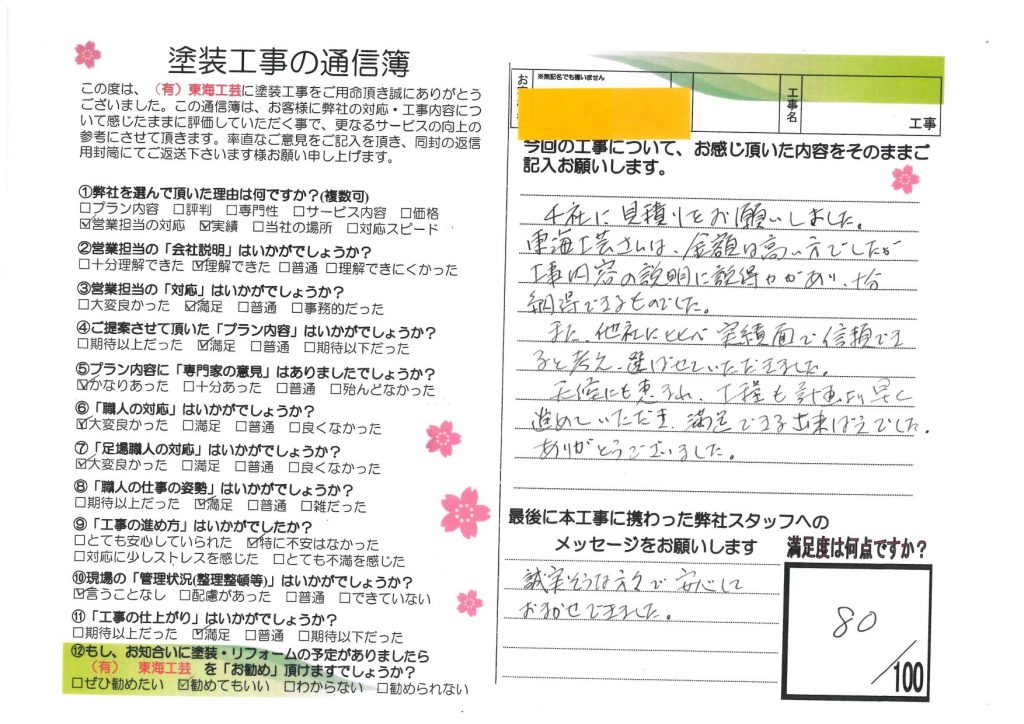 塗装工事の通信簿
この度は、(有)東海工芸に塗装工事をご用命頂き誠にありがとう
ございました。この通信簿は、お客様に弊社の対応・工事内容につ
いて感じたままに評価していただく事で、更なるサービスの向上の
参考にさせて頂きます。率直なご意見をご記入を頂き、同封の返信
用封筒にてご返送下さいます様お願い申し上げます。
①弊社を選んで頂いた理由は何ですか?(複数可)
□プラン内容 □評判 □専門性 □サービス内容 □価格
☑営業担当の対応 ☑実績 □当社の場所 □対応スピード
②営業担当の「会社説明」はいかがでしょうか?
□十分理解できた ☑理解できた □普通 □理解できにくかった
③営業担当の「対応」はいかがでしょうか?
□大変良かった ☑満足 □普通 □事務的だった
④ご提案させて頂いた「プラン内容」はいかがでしょうか?
□期待以上だった ☑満足 □普通 □期待以下だった
⑤プラン内容に「専門家の意見」はありましたでしょうか?
☑かなりあった □十分あった □普通 □殆んどなかった
⑥「職人の対応」はいかがでしょうか?
☑大変良かった □満足 □普通 □良くなかった
⑦「足場職人の対応」はいかがでしょうか?
☑大変良かった □満足 □普通 □良くなかった
⑧「職人の仕事の姿勢」はいかがでしょうか?
□期待以上だった ☑満足 □普通 □雑だった
⑨「工事の進め方」はいかがでしたか?
□とても安心していられた ☑特に不安はなかった
□対応に少しストレスを感じた □とても不満を感じた
⑩現場の「管理状況(整理整頓等)」はいかがでしょうか?
☑言うことなし □配慮があった □普通 □できていない
⑪「工事の仕上がり」はいかがでしょうか?
□期待以上だった ☑満足 □普通 □期待以下だった
⑫もし、お知合いに塗装・リフォームの予定がありましたら
(有) 東海工芸 を「お勧め」頂けますでしょうか?
□ぜひ勧めたい ☑勧めてもいい □わからない □勧められない
お
※無記名でも構いません
工事名
工事
今回の工事について、お感じ頂いた内容をそのままご
記入お願いします。
4社に見積りをお願いしました。
東海工芸さんは、金額は高い方でしたが
工事内容の説明に説得力があり、十分
納得できるものでした。
また、他社にくらべ実績面で信頼でき
ると考え、選ばせていただきました。
天候にも恵まれ、工程も計画より早く
進めていただき、満足できる出来ばえでした。
ありがとうございました。
最後に本工事に携わった弊社スタッフへの
メッセージをお願いします
誠実そうな方々で安心して
おまかせできました。
満足度は何点ですか?
80
/100